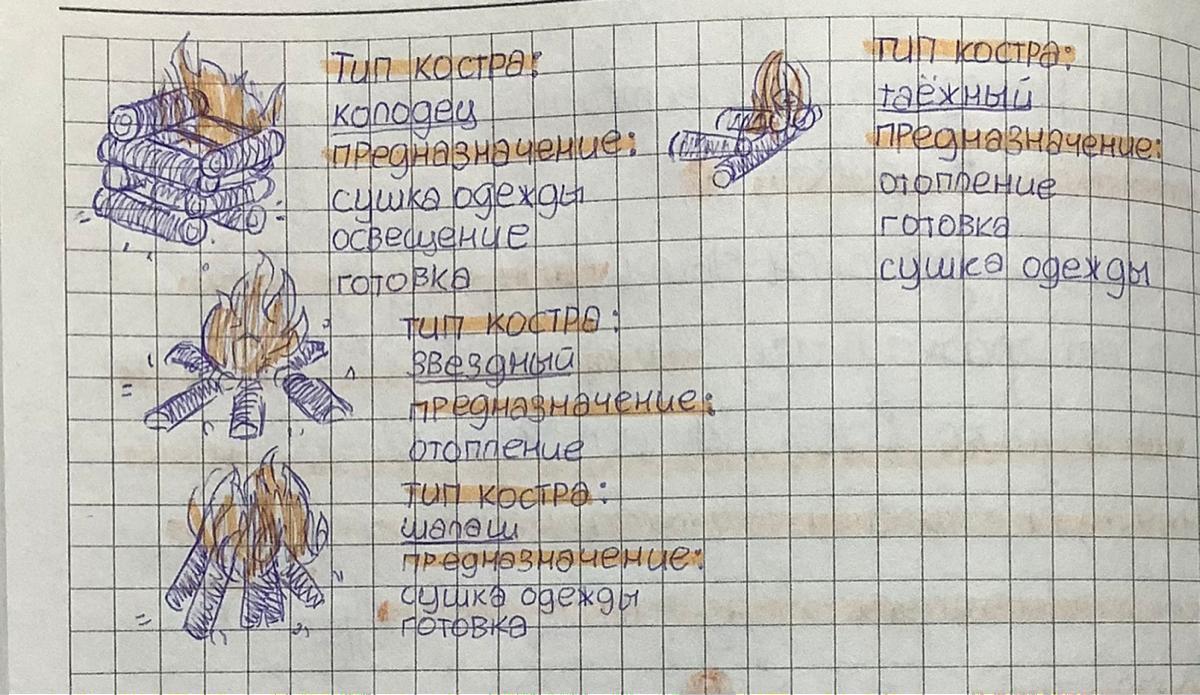 Тип костра:
колодец
предназначение:
сушка одежды
освещение
готовка
тип костра:
звездный
предназначение:
отопление
тип костра:
шалаш
предназначение:
сушка одежды
готовка
тип костра:
таёжный
предназначение:
отопление
готовка
сушка одежды